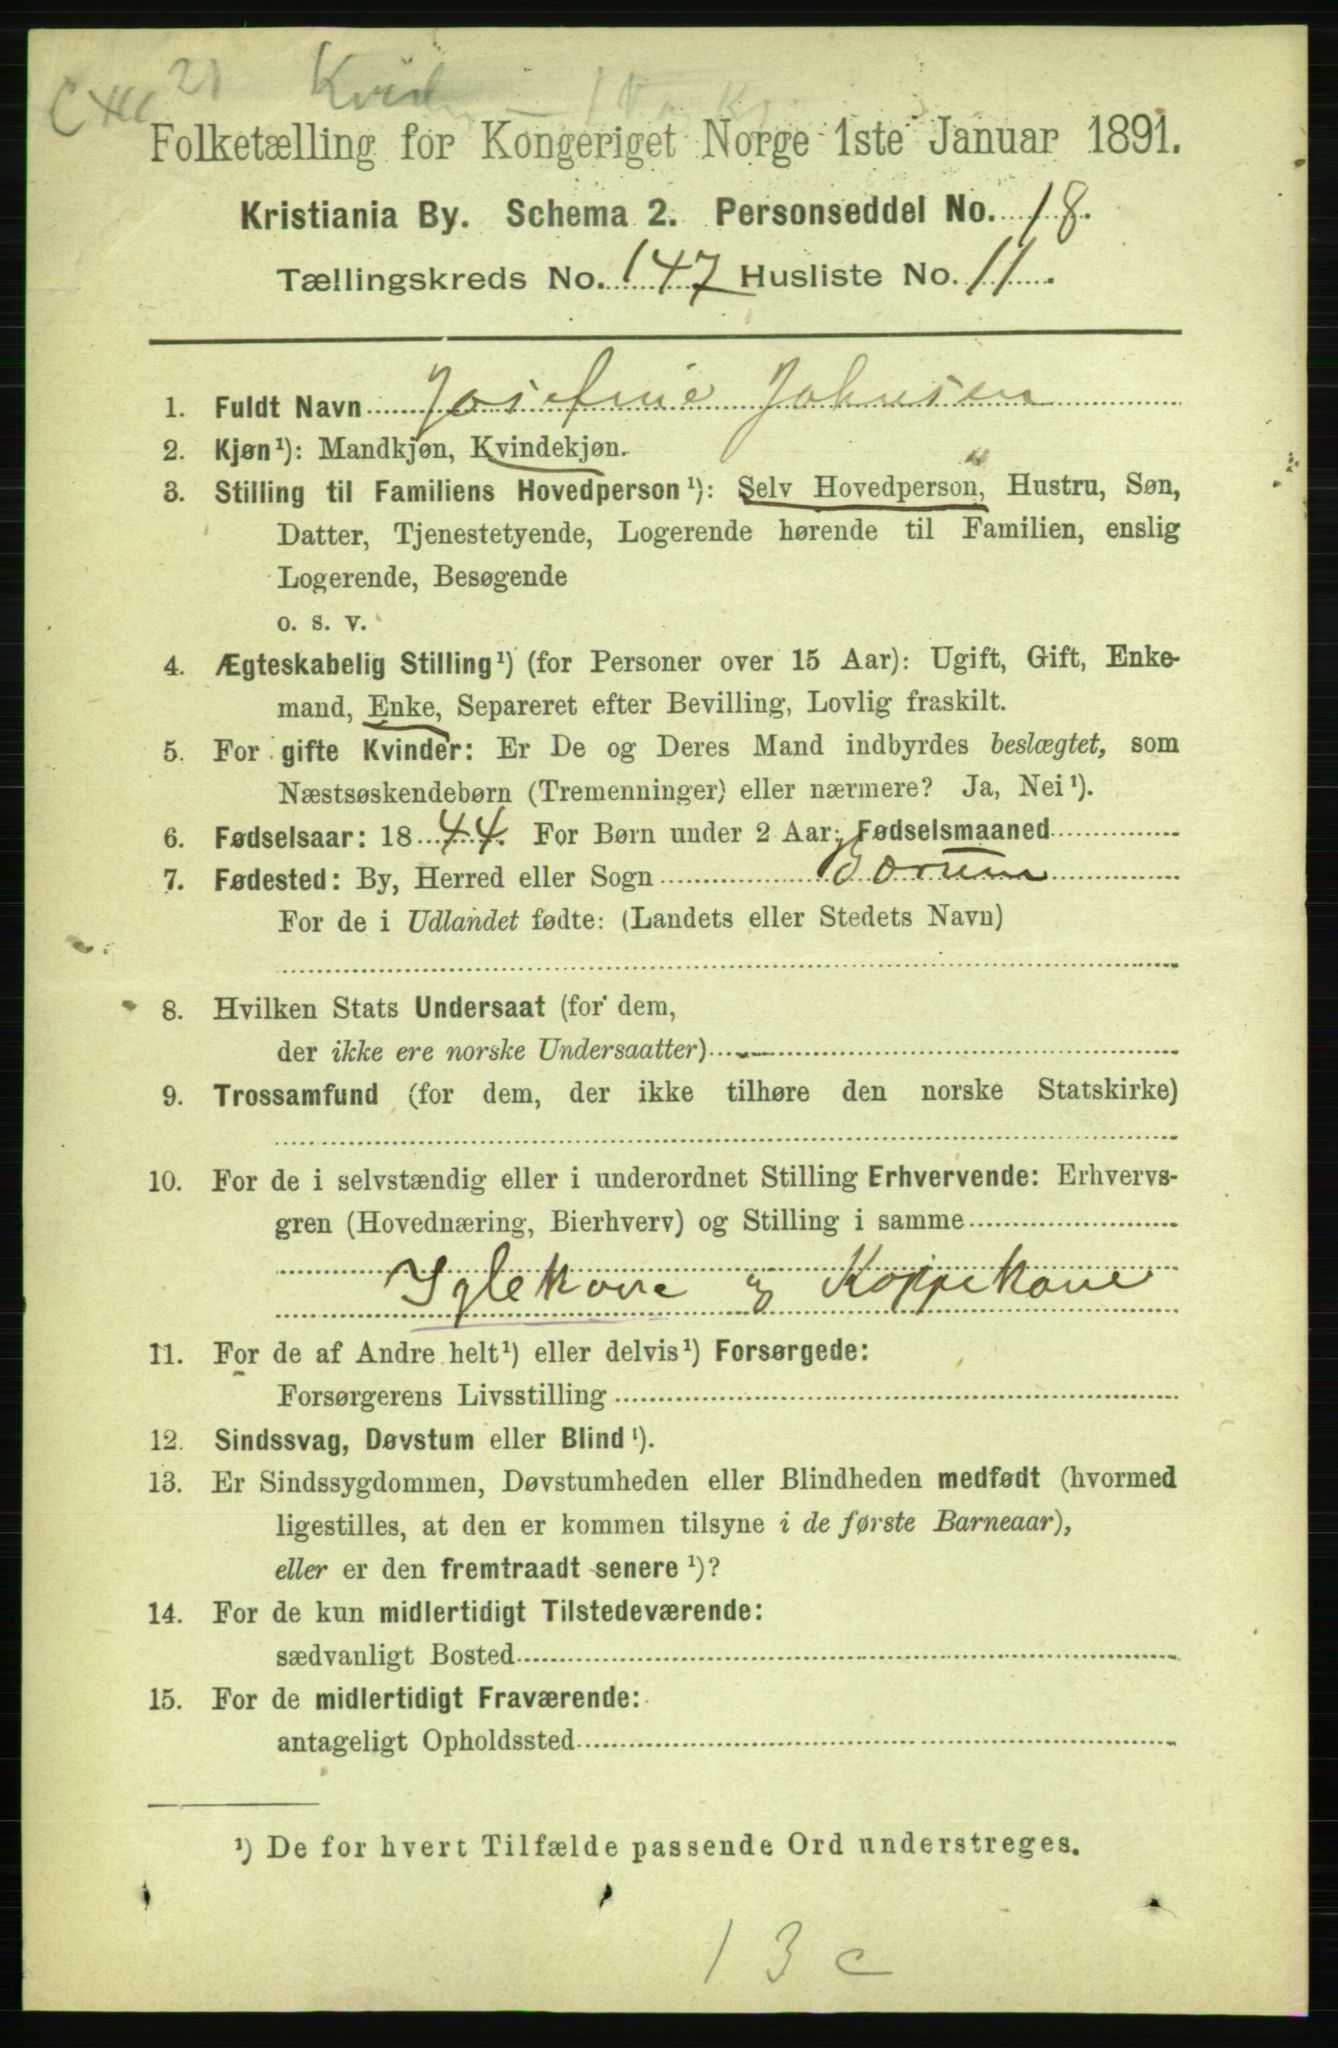 CXII 21 Kvid
Folketælling for Kongeriget Norge 1ste Januar 1891.
Kristiania By. Schema 2. Personseddel No. 18.
Tællingskreds No. 147 Husliste No. 11.
1. Fuldt Navn Josefine Johnsen
2. Kjøn¹): Mandkjøn, Kvindekjøn.
3. Stilling til Familiens Hovedperson¹): Selv Hovedperson, Hustru, Søn,
Datter, Tjenestetyende, Logerende hørende til Familien, enslig
Logerende, Besøgende
o. s. v.
4. Ægteskabelig Stilling¹) (for Personer over 15 Aar): Ugift, Gift, Enke-
mand, Enke, Separeret efter Bevilling, Lovlig fraskilt.
5. For gifte Kvinder: Er De og Deres Mand indbyrdes beslægtet, som
Næstsøskendebørn (Tremenninger) eller nærmere? Ja, Nei¹).
6. Fødselsaar: 1844. For Børn under 2 Aar: Fødselsmaaned
7. Fødested: By, Herred eller Sogn Sørum
For de i Udlandet fødte: (Landets eller Stedets Navn)
8. Hvilken Stats Undersaat (for dem,
der ikke ere norske Undersaatter)
9. Trossamfund (for dem, der ikke tilhøre den norske Statskirke)
10. For de i selvstændig eller i underordnet Stilling Erhvervende: Erhvervs-
gren (Hovednæring, Bierhverv) og Stilling i samme
Iglekone og Koppekone
11. For de af Andre helt¹) eller delvis¹) Forsørgede:
Forsørgerens Livsstilling
12. Sindssvag, Døvstum eller Blind¹).
13. Er Sindssygdommen, Døvstumheden eller Blindheden medfødt (hvormed
ligestilles, at den er kommen tilsyne i de første Barneaar),
eller er den fremtraadt senere¹)?
14. For de kun midlertidigt Tilstedeværende:
sædvanligt Bosted
15. For de midlertidigt Fraværende:
antageligt Opholdssted
¹) De for hvert Tilfælde passende Ord understreges.
13 c